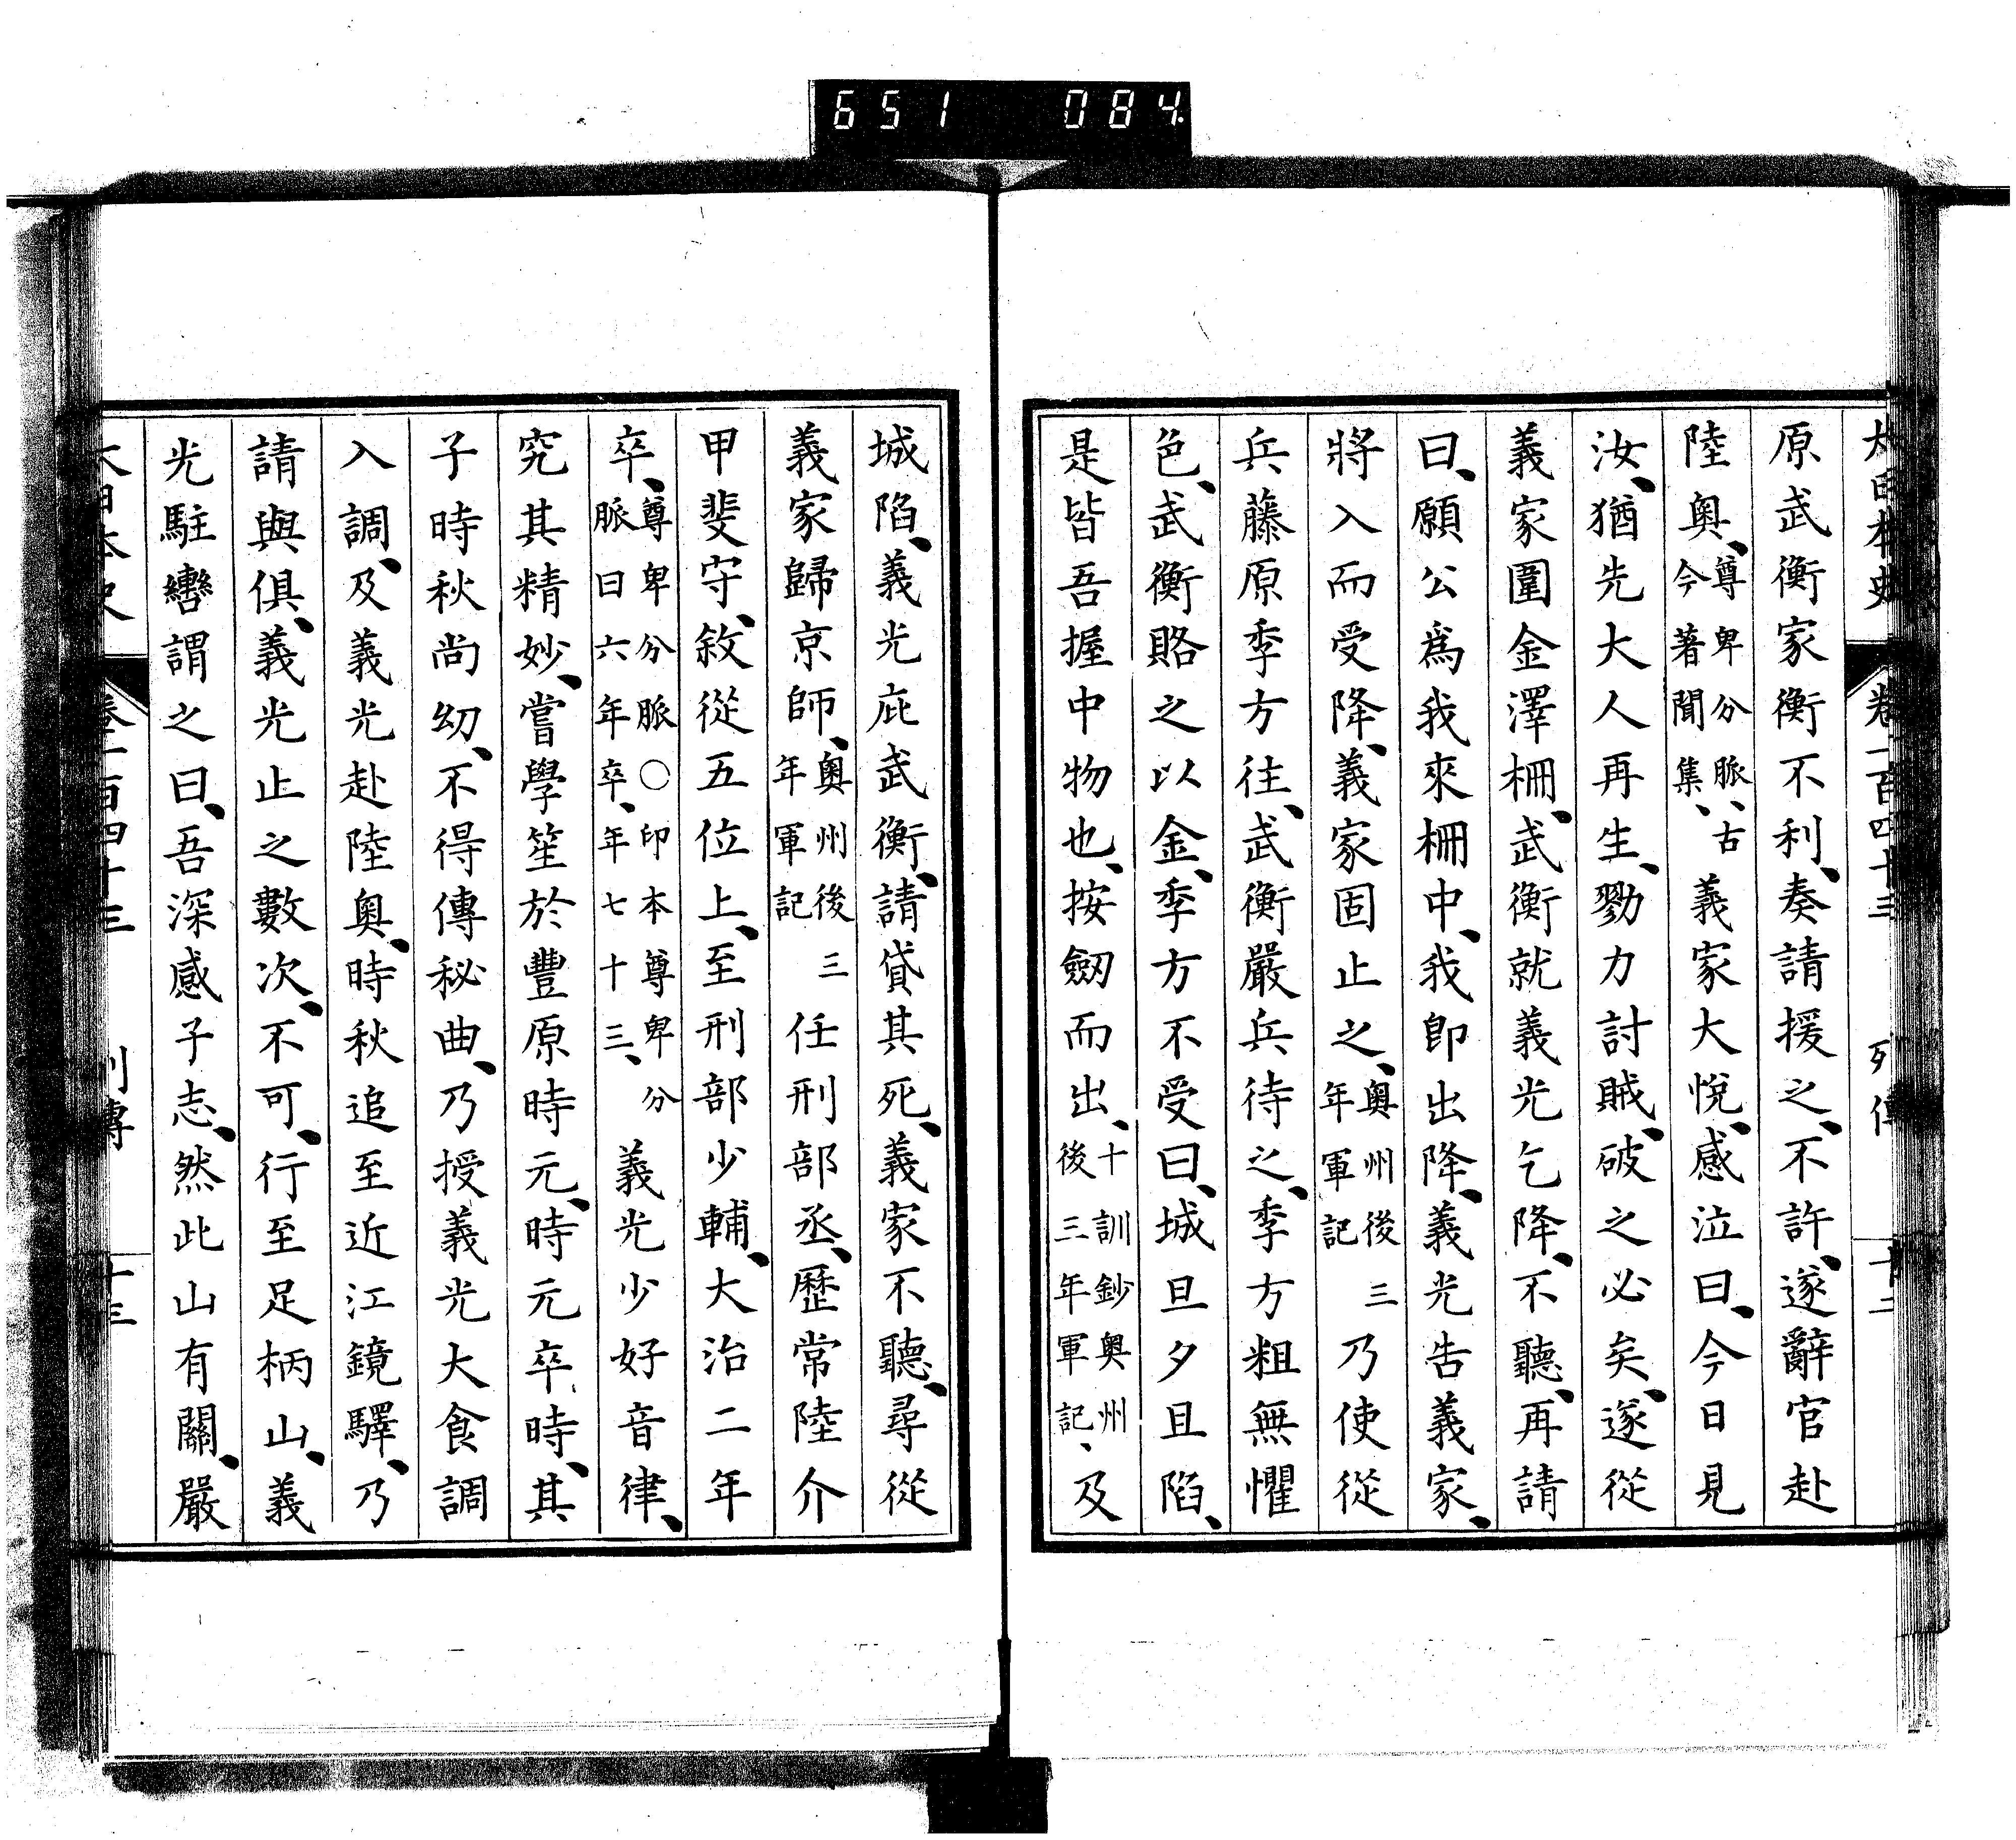 651 084
大日本史 卷一百四十三 列傳 十二
原武衡家衡不利、奏請援之、不許、遂辭官赴
陸奧、尊卑分脈、古今著聞集、義家大悅、感泣曰、今日見
汝、猶先大人再生、勠力討賊、破之必矣、遂從
義家圍金澤柵、武衡就義光乞降、不聽、再請
曰、願公爲我來柵中、我卽出降、義光告義家、
將入而受降、義家固止之、奧州後三年軍記乃使從
兵藤原季方往、武衡嚴兵待之、季方粗無懼
色、武衡賂之以金、季方不受曰、城旦夕且陷、
是皆吾握中物也、按劔而出、十訓鈔奧州後三年軍記、及
城陷、義光庇武衡、請貸其死、義家不聽、尋從
義家歸京師、奧州後三年軍記任刑部丞、歷常陸介
甲斐守、敘從五位上、至刑部少輔、大治二年
卒、尊卑分脈〇印本尊卑分脈曰六年卒、年七十三、義光少好音律、
究其精妙、嘗學笙於豐原時元、時元卒時、其
子時秋尚幼、不得傳秘曲、乃授義光大食調
入調、及義光赴陸奧、時秋追至近江鏡驛、乃
請與俱、義光止之數次、不可、行至足柄山、義
光駐轡謂之曰、吾深感子志、然此山有關、嚴
大日本史 卷一百四十三 列傳 十三